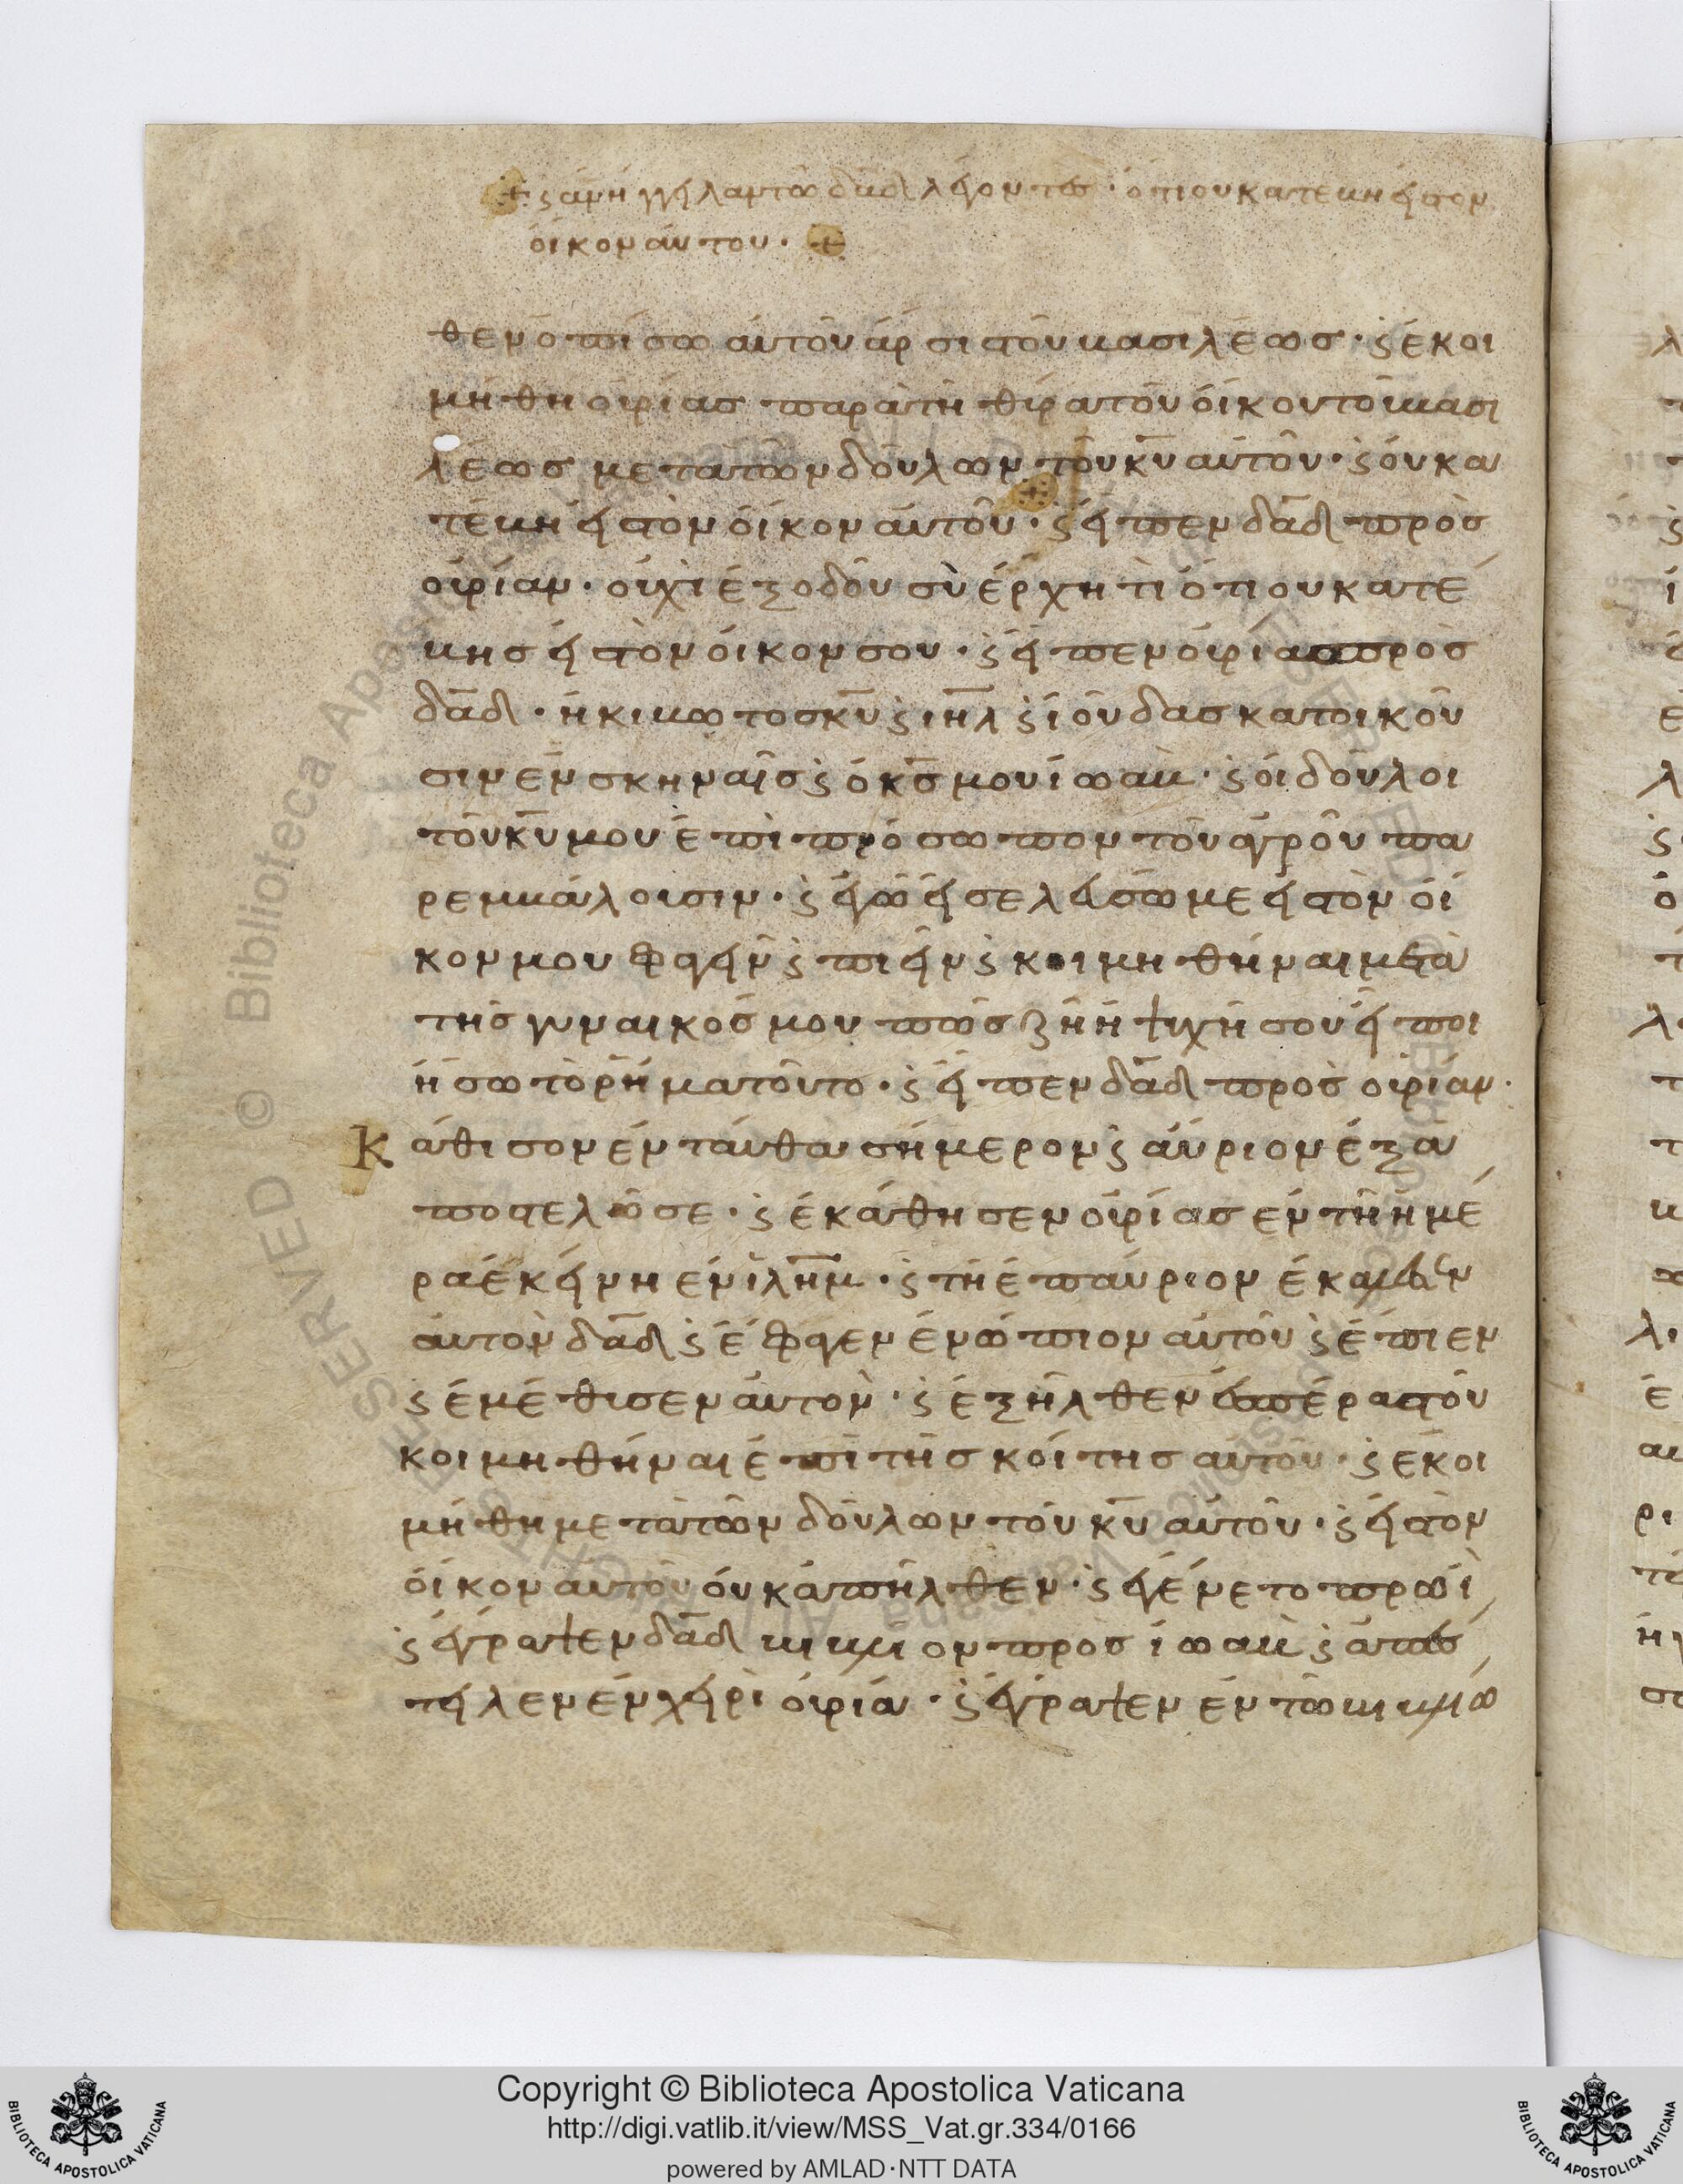 + ϛ ἀνήγγηλαν τῶ δαδ λέγοντες · ὅτι οὐ κατέβη εἰς τὸν
οἶκον αὐτοῦ · +
θεν ὀπίσω αὐτοῦ ἄρσις τοῦ βασιλέως · ϛ ἐκοι
μήθη οὐρίας παρὰ τῆ θύρα τοῦ οἴκου τοῦ βασι
λέως μετὰ τῶν δούλων τοῦ κυ αὐτοῦ · ϛ οὐ κα
τέβη εἰς τὸν οἶκον αὐτοῦ · ϛ εἶπεν δαδ πρὸς
οὐρίαν · οὐχὶ ἐξ ὁδοῦ σὺ ἔρχη τί ὅτι οὐ κατέ
βης εἰς τὸν οἶκον σου · ϛ εἶπεν οὐρίας πρὸς
δαδ · ἡ κιβωτος κυ ϛ ιηλ ϛ ἰούδας κατοικοῦ
σιν ἐν σκηναῖς ϛ ὁ κς μου ἰωαβ · ϛ οἱ δοῦλοι
τοῦ κυ μου ἐπὶ πρόσωπον τοῦ ἀγροῦ πα
ρεμβάλοισιν · ϛ ἐγὼ εἰσελεύσωμε εἰς τὸν οἶ
κον μου φαγεῖν ϛ πιεῖν ϛ κοιμηθῆναι μετὰ
τῆς γυναικός μου πῶς ζῆ ἡ ψυχή σου εἰ ποι
ήσω τὸ ρῆμα τοῦτο · ϛ εἶπεν δαδ πρὸς οὐρίαν ·
Κάθισον ἐνταῦθα σήμερον ϛ αὔριον ἐξα
ποστελῶ σε · ϛ ἐκάθησεν οὐρίας ἐν τῆ ἡμέ
ρα ἐκείνη ἐν ιλημ · ϛ τῆ ἐπαύριον ἐκάλεσεν
αὐτὸν δαδ ϛ ἔφαγεν ἐνώπιον αὐτοῦ ϛ ἔπιεν
ϛ ἐμέθισεν αὐτὸν · ϛ ἐξῆλθεν ἑσπέρας τοῦ
κοιμηθῆναι ἐπὶ τῆς κοίτης αὐτοῦ · ϛ ἐκοι
μήθη μετὰ τῶν δούλων τοῦ κυ αὐτοῦ · ϛ εἰς τὸν
οἶκον αὐτοῦ οὐκ ἀπῆλθεν · ϛ ἐγένετο πρωῒ
ϛ ἔγραψεν δαδ βιβλίον πρὸς ἰωαβ ϛ ἀπές
τειλεν ἐν χειρὶ οὐρία · ϛ ἔγραψεν ἐν τῶ βιβλίω
Copyright © Biblioteca Apostolica Vaticana
http://digi.vatlib.it/view/MSS_Vat.gr.334/0166
powered by AMLAD·NTT DATA
BIBLIOTECA APOSTOLICA VATICANA
BIBLIOTECA APOSTOLICA VATICANA